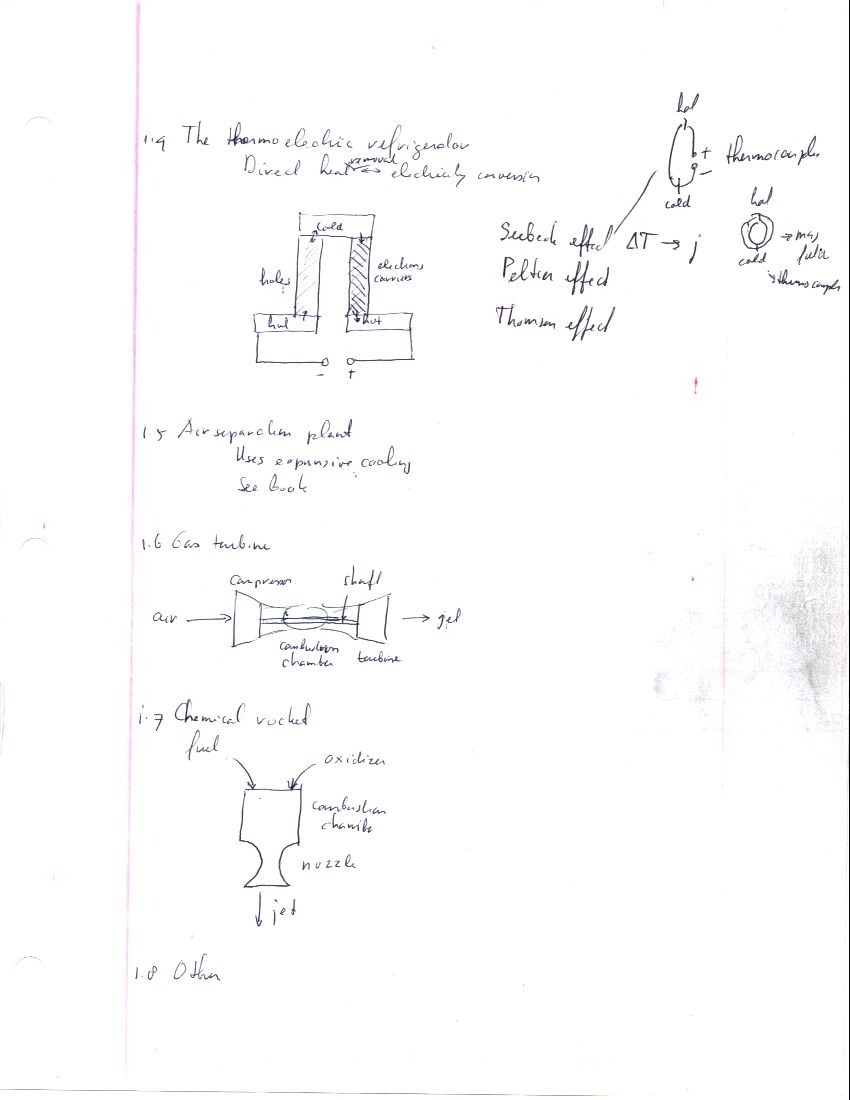 1.4 The thermoelectric refrigerator
removal
Direct heat ↔ electricity conversion
cold
holes
electrons
carriers
hot
hot
- +
hot
+
-
thermocouple
cold
Seebeck effect ΔT → j
hot
cold
→ mag
thermocouple
Peltier effect
Thomson effect
1.5 Air separation plant
Uses expansive cooling
See book
1.6 Gas turbine
compressor
shaft
air
combustion
chamber
turbine
jet
1.7 Chemical rocket
fuel
oxidizer
combustion
chamber
nozzle
jet
1.8 Other